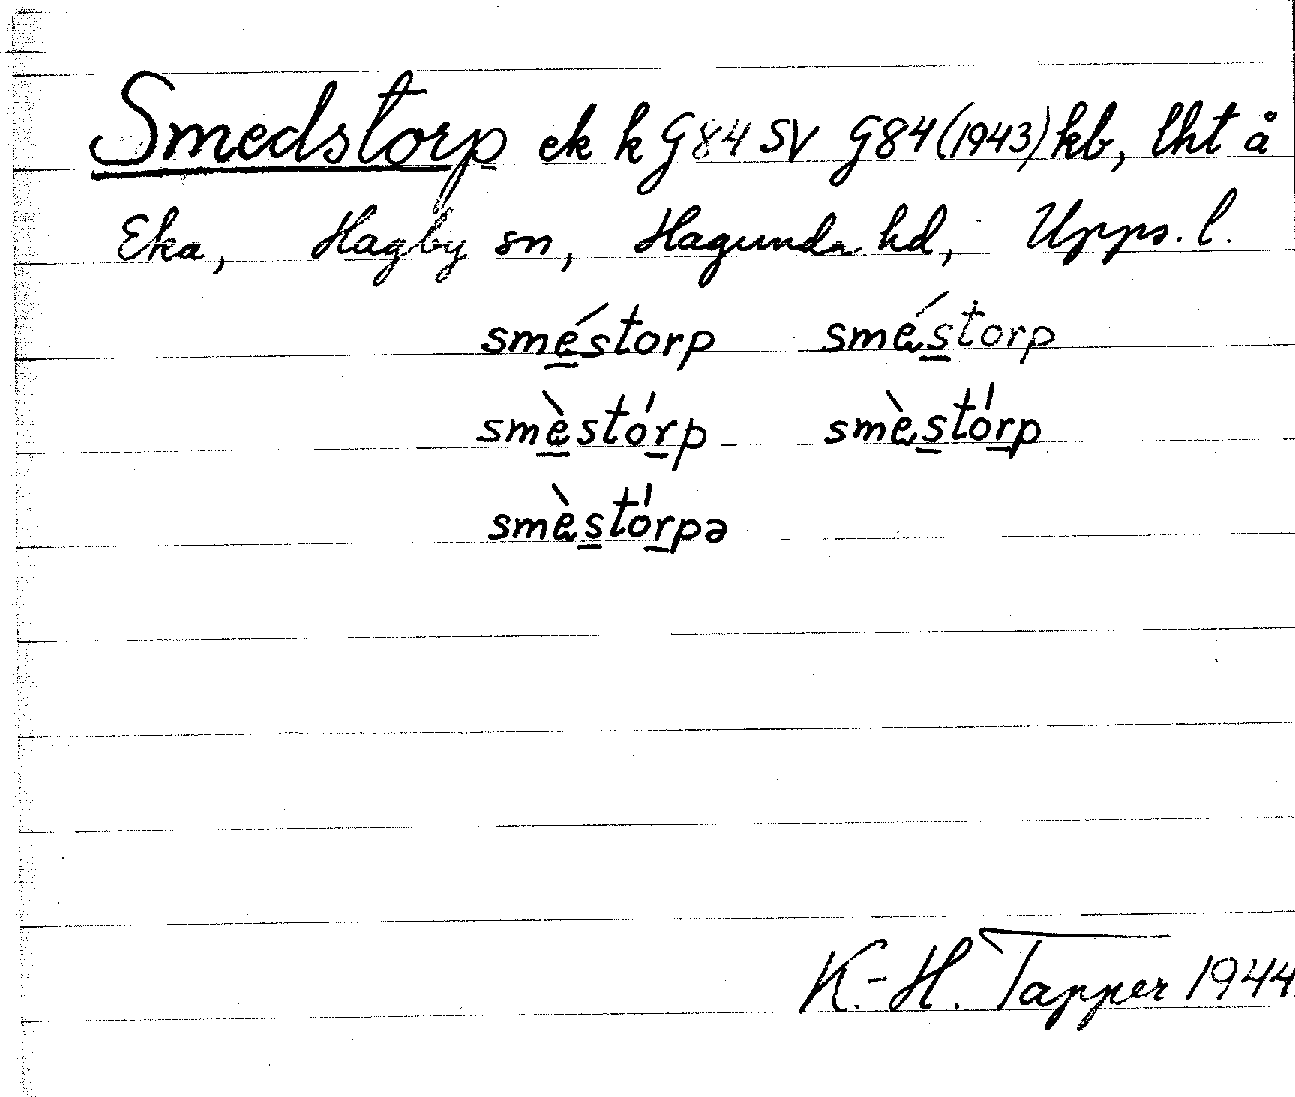 Smedstorp ek k G84 SV G84 (1943) kb, lht å
Eka, Hagby sn, Hagunda hd, Upps. l.
smé̲storp smés̲torp
smè̲stór̲p smès̲tór̲p
smès̲tór̲pə
K.-H. Tapper 1944